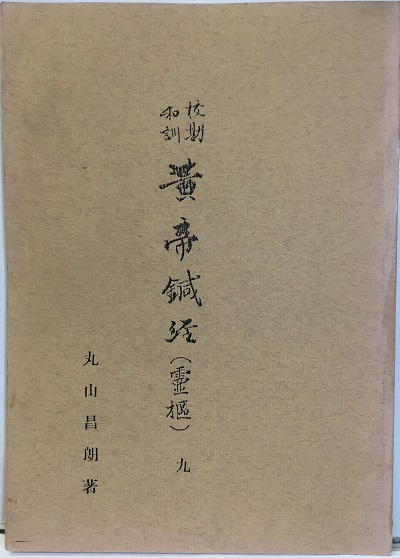 校勘
和訓
黄帝鍼経(靈樞)九
丸山昌朗著